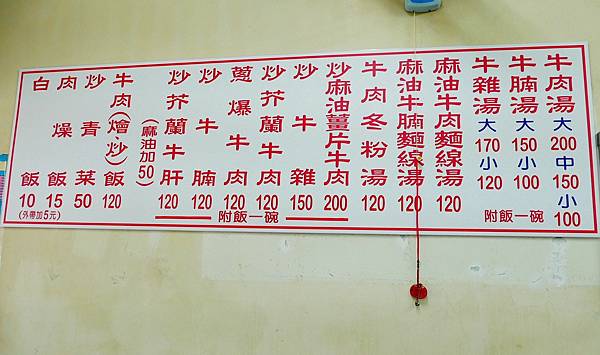 牛肉湯 大 200 中 150 小 100
牛腩湯 大 150 小 100
牛雜湯 大 170 小 120
附飯一碗
麻油牛肉麵線湯 120
麻油牛腩麵線湯 120
牛肉冬粉湯 120
炒麻油薑片牛肉 200
炒牛雜 150
炒芥蘭牛肉 120
蔥爆牛肉 120
炒牛腩 120
炒芥蘭牛肝 120
附飯一碗
(麻油加50)
牛肉(燴、炒)飯 120
炒青菜 50
肉燥飯 15
白飯 10
(外帶加5元)